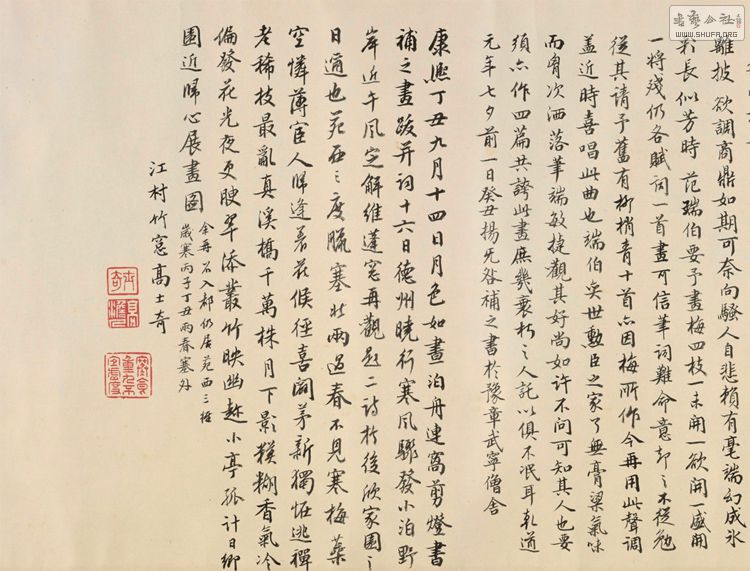 書藝公社
WWW.SHUFA.ORG
雖披欲調商鼎如期可奈向騷人自悲賴有毫端幻成冰
彩長似芳時范端伯要予畫梅四枝一未開一欲開一盛開
一將殘仍各賦詞一首畫可信筆詞難命意却之不從勉
從其請予舊有柳梢青十首亦因梅所作今再用此聲調
盖近時喜唱此曲也端伯奕世勲臣之家了無膏粱氣味
而胷次洒落筆端敏捷觀其好尚如許不問可知其人也要
須亦作四篇共誇此畫庶幾衰朽之人託以俱不泯耳乾道
元年七夕前一日癸丑揚无咎補之書於豫章武寧僧舍
康熈丁丑九月十四日月色如晝泊舟連窩剪燈書
補之畫跋并詞十六日德州曉行寒風驟發小泊野
岸近午風定解維蓬窓再觀題二詩於後欣家園之
日邇也苑西三度臘塞北兩過春不見寒梅蘂
空憐薄宦人歸逢着花候徑喜闢茅新獨恠逃禪
老稀枝最亂真溪橋千萬株月下影模糊香氣冷
偏發花光夜更腴翠添叢竹映幽趁小亭孤計日鄉
園近歸心展畫圖
余再召入都仍居苑西三經
歲寒丙子丁丑兩春塞外
江村竹窓高士奇